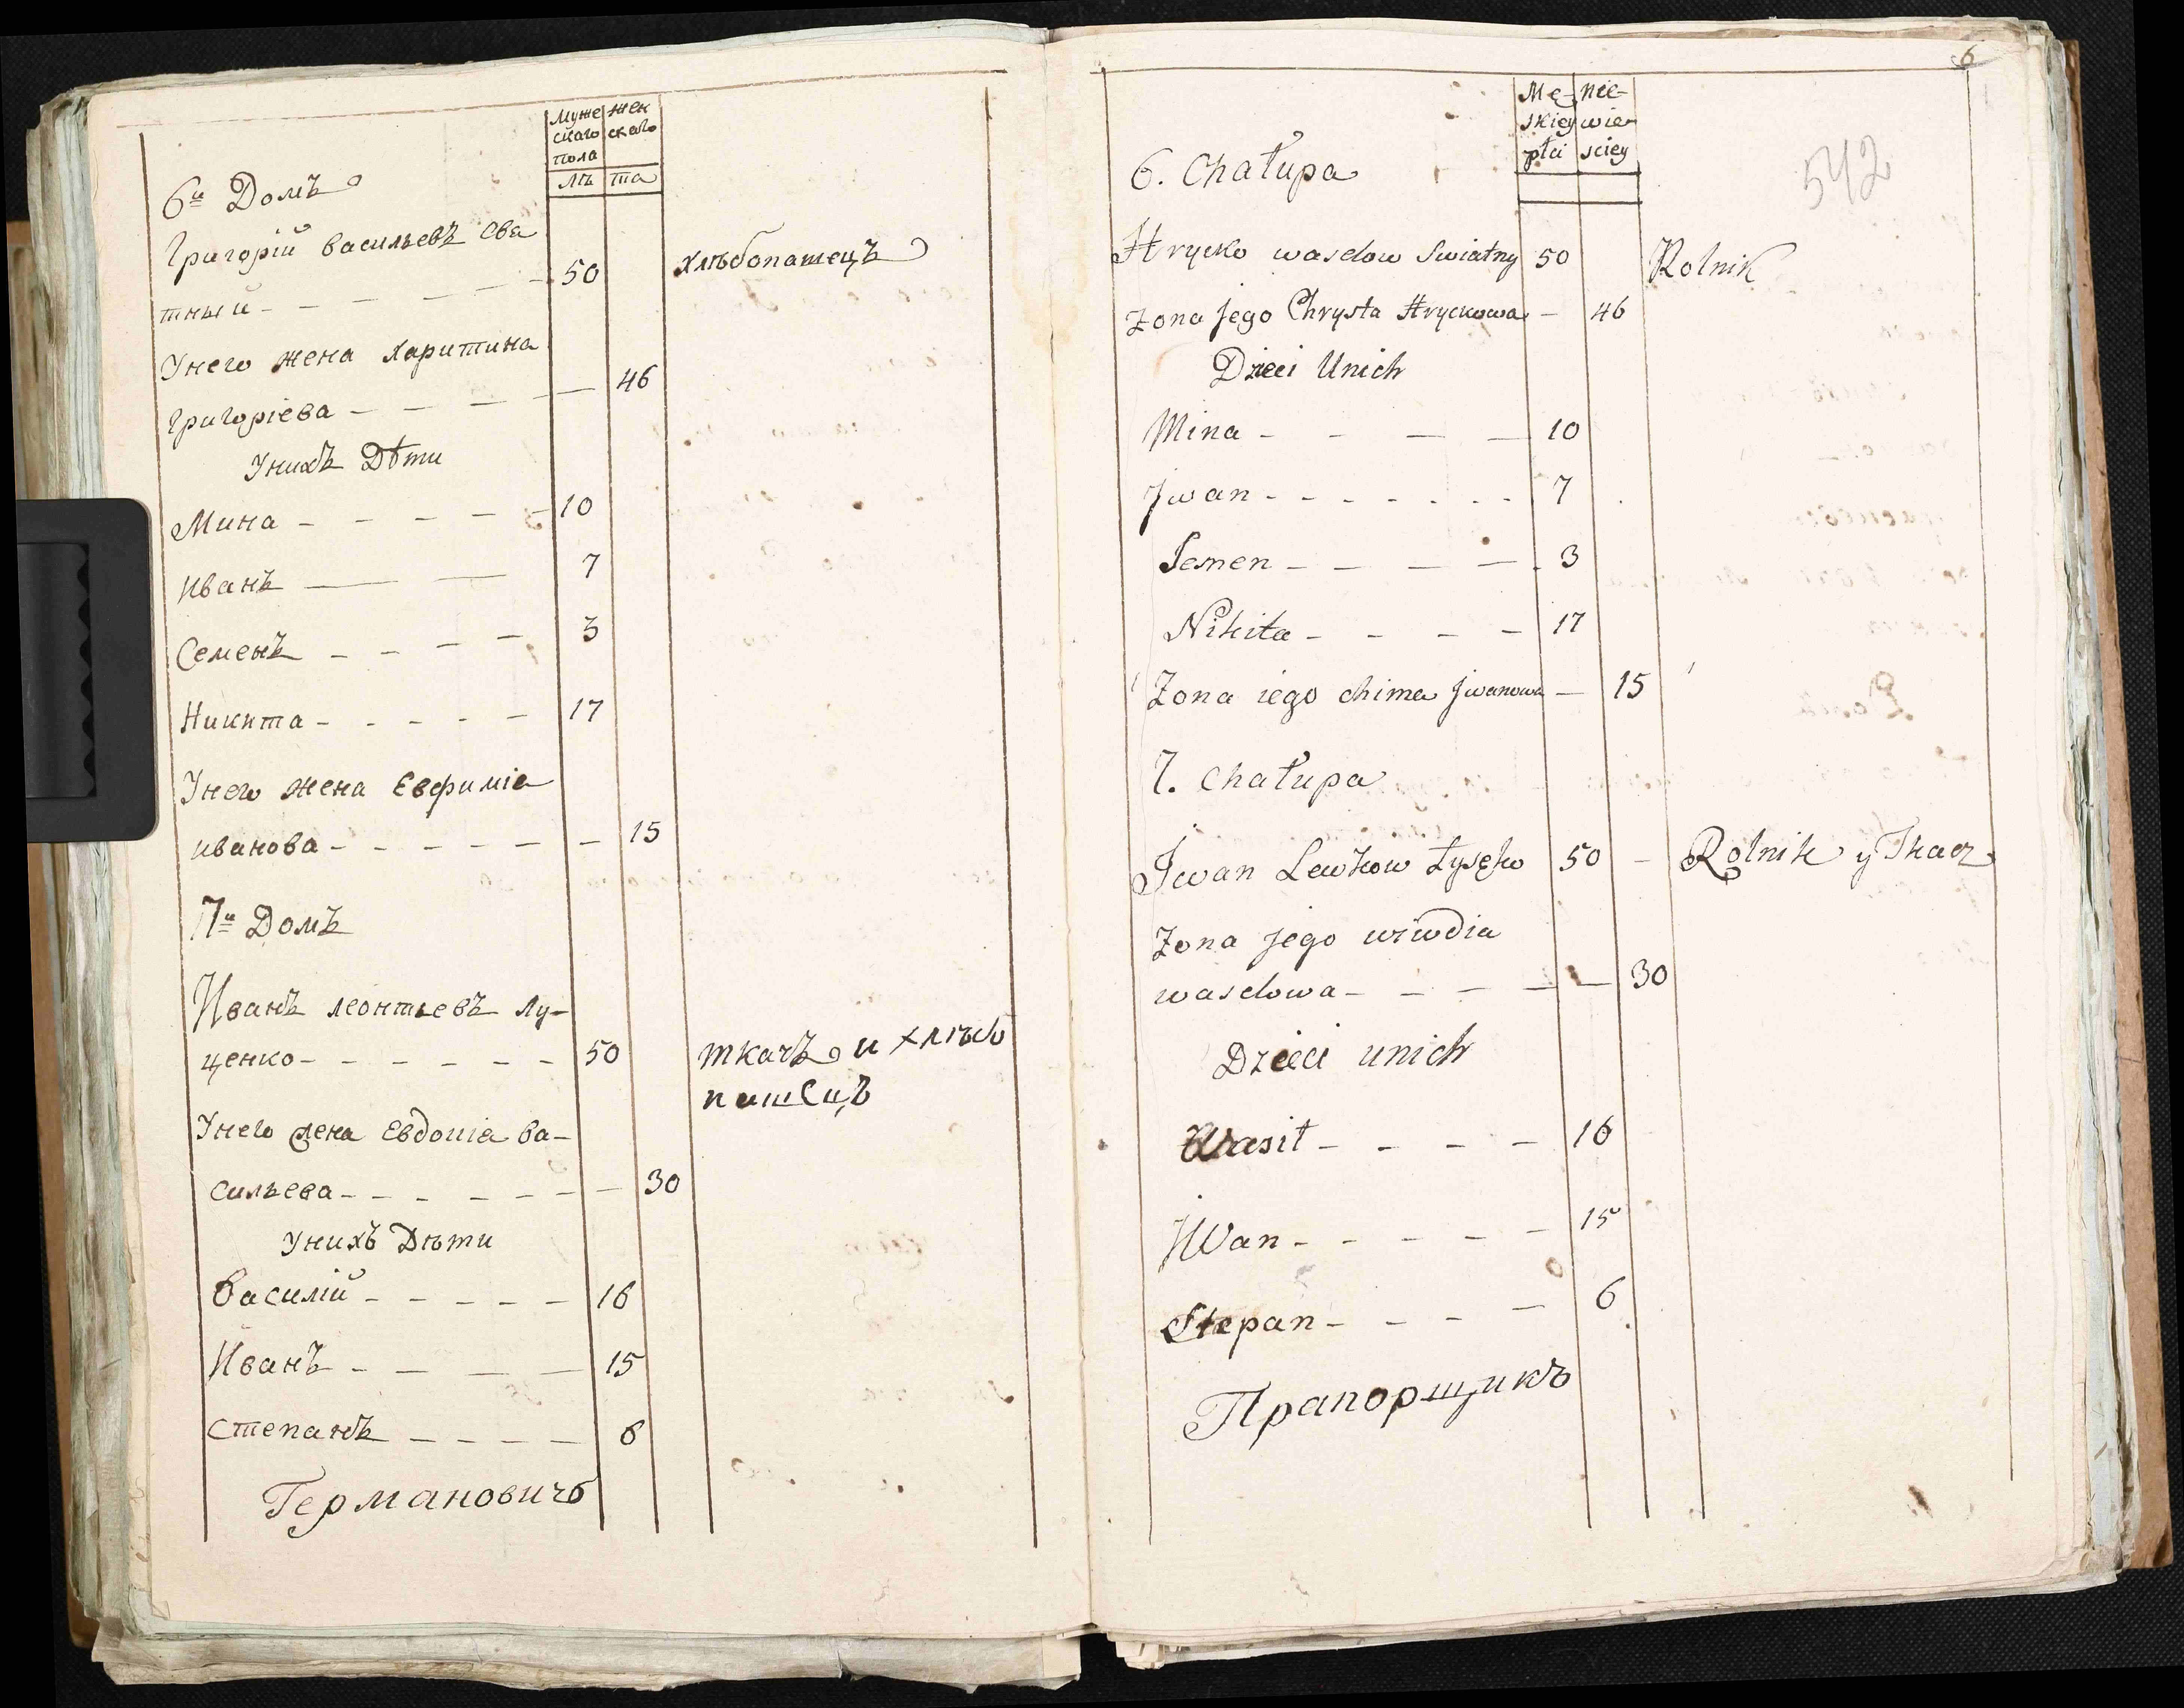 Муже жен
скаго скаго
пола
лѣ та
6й Домъ
Григорій васильевъ Свя
тный - - - - - 50 хлѣбопашецъ
Унего жена харитина
григоріева - - - - 46
Унихъ Дѣти
Мина - - - - - 10
Иванъ — — 7
Семенъ - - - - 3
Никита - - - - - 17
Унего жена Евфиміа
иванова - - - - - - 15
7й Домъ
Иванъ леонтьевъ Лу-
ценко - - - - - - 50 ткачъ и хлѣбо
пашецъ
Унего жена Евдокіа ва-
сильева - - - - - - - 30
Унихъ Дѣти
Василій - - - - - 16
Иванъ - - - - 15
Степанъ - - - - 6
Германовичъ
6
Mę- nie-
skiey wie-
płci sciey
542
6. Chałupa
Hrycko waselow Swiatny 50 Rolnik
Zona jego Chrysta Hryckowa - 46
Dzieci Unich
Mina - - - - 10
Jwan - - - - - - - 7
Semen - - - - 3
Nikita - - - - 17
Zona iego chima Jwanowa - 15
7. Chałupa
Jwan Lewkow Łysęko 50 - Rolnik y Tkacz
Zona jego wiwdia
waselowa - - - - - 30
Dzieci unich
Wasil - - - - 16
Iwan - - - - - 15
Stepan - - - - 6
Прапорщикъ